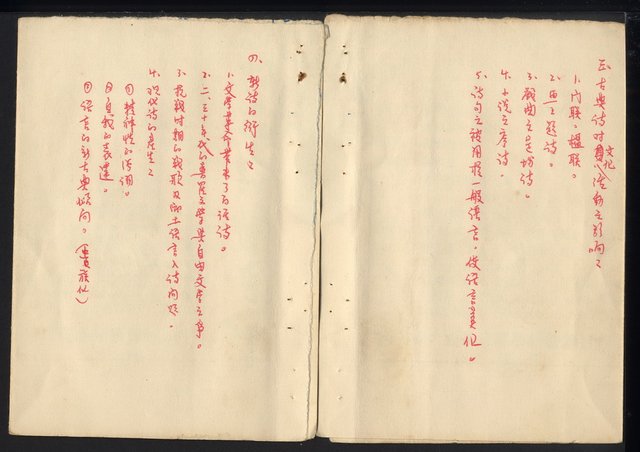 五、古典詩對文化活動之影響：
1、門聯、楹聯。
2、畫之題詩。
3、戲曲之定場詩。
4、小說之序詩。
5、詩句之被用於一般語言，使語言美化。
四、新詩的衍生：
1、文學革命帶來了白話詩。
2、二、三十年代的普羅文學與自由文學之爭。
3、抗戰時期的戰歌及鄉土語言入詩問題。
4、現代詩的產生：
①精神性的強調。
②自我的表達。
③語言的新古典傾向。（貴族化）